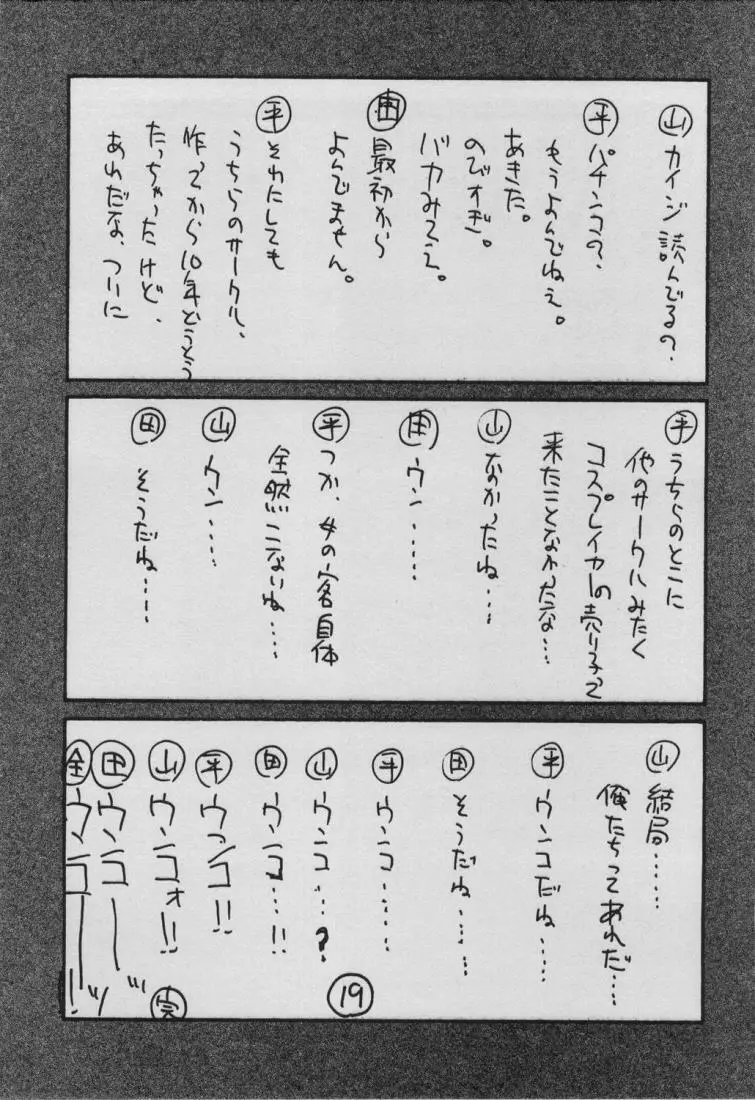 山 カイジ読んでるの?
平 パチンコの?
もうよんでねえ。
あきた。
のびすぎ。
バカみてえ。
田 最初から
よんでません。
平 それにしても
うちらのサークル、
作ってから10年どうとう
たっちゃったけど、
あれだな、ついに
平 うちらのとこに
他のサークルみたく
コスプレイヤーの売り子って
来たことなかったな…
山 なかったね…
田 ウン……
平 つか、女の客自体
全然こないね…
山 ウン……
田 そうだね…
山 結局……
俺たちってあれだ…
平 ウンコだね……
田 そうだね……
平 ウンコ……
山 ウンコ…?
田 ウンコ…!!
平 ウンコ!!
山 ウンコォ!!
田 ウンコーッ!!
全 ウンコーッ!
完
19